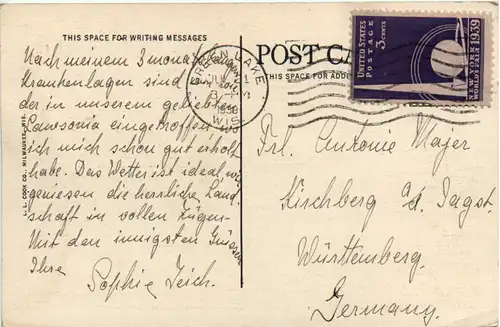 THIS SPACE FOR WRITING MESSAGES
Nach meinem 3 monatlangen
Krankenlager sind wir wie-
der in unserem geliebten
Lawsonia eingetroffen, wo
ich mich schon gut erholt
habe. Das Wetter ist ideal, wir
geniesen die herrliche Land-
schaft in vollen Zügen.
Mit den innigsten Grüssen
Ihre
Sophie Teich.
L. L. COOK CO., MILWAUKEE, WIS.
GREEN LAKE
WIS.
POST CA
THIS SPACE FOR ADD
UNITED STATES
POSTAGE
3 CENTS
NEW YORK
WORLD'S FAIR
1939
Frl. Antonie Majer
Kirchberg a/d. Jagst.
Württemberg.
Germany.